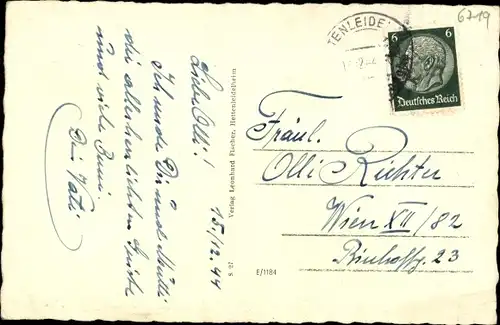 6719
TENLEIDE
6
Deutsches Reich
Liebe Olli!
15/12.44
Ich sende Dir und Mutti
die allerherzlichsten Grüße
und viele Bussi
Dein Vati
Verlag Leonhard Fischer, Hettenleidelheim
S. 27
E/1184
Fräul.
Olli Richter
Wien XII/82
23